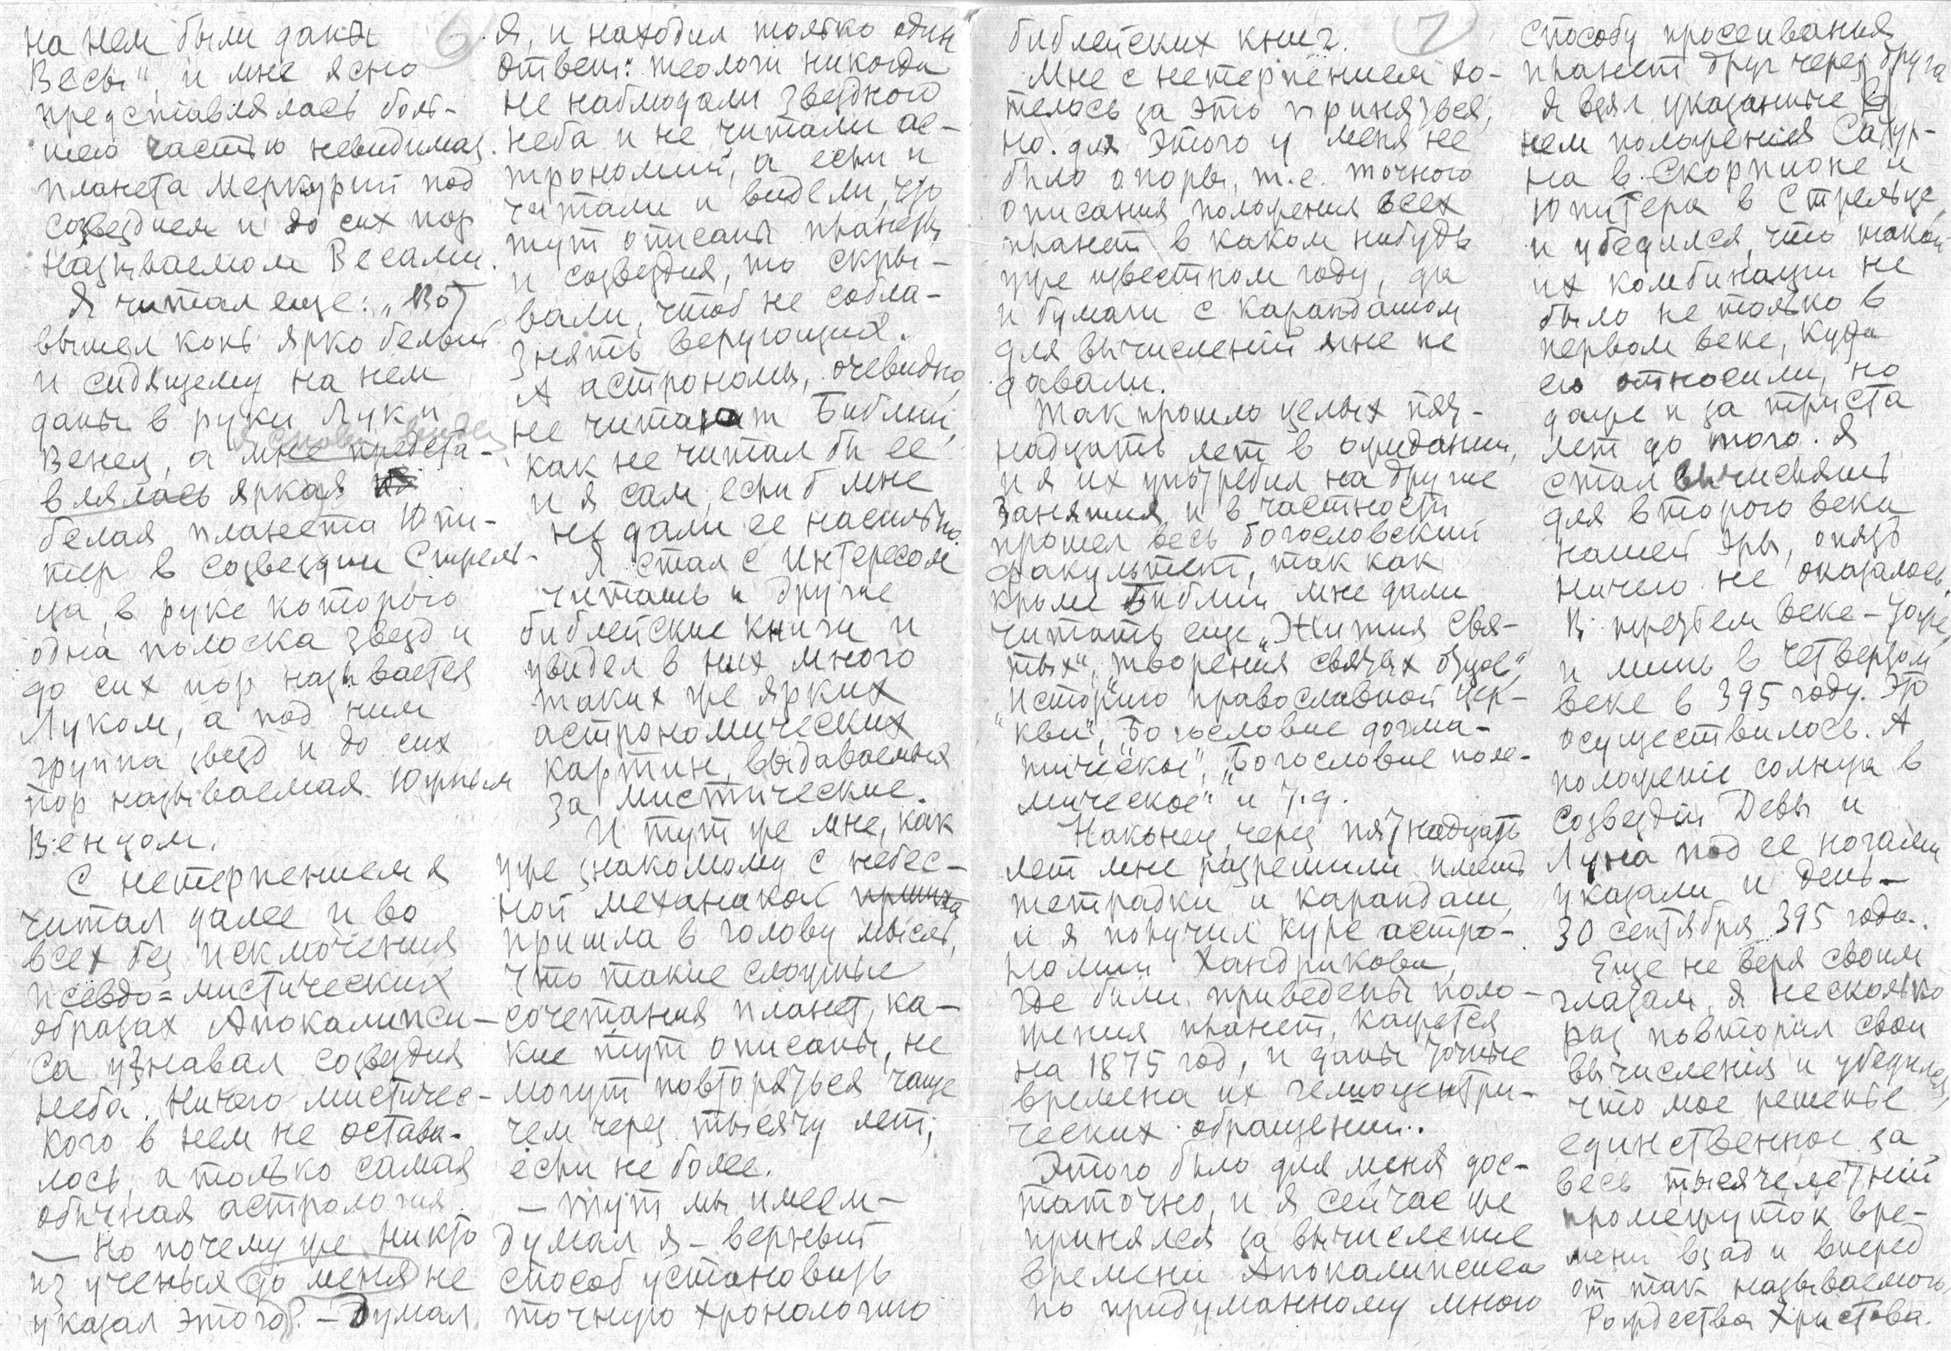 6
на нем были даны
Весы", и мне ясно
представлялась боль-
шею частью невидимая
планета Меркурий под
созвездием и до сих пор
называемом Весами.
Я читал еще: „Вот
вышел конь ярко белый
и сидящему на нем
даны в руки Лук и
Венец, а мне предста-
влялась яркая
белая планета Юпи-
тер в созвездии Стрель-
ца, в руке которого
одна полоска звезд и
до сих пор называется
Луком, а под ним
группа звезд и до сих
пор называемая Южным
Венцом.
С нетерпением я
читал далее и во
всех без исключения
псевдо=мистических
образах Апокалипси-
са узнавал созвездия
неба. Ничего мистичес-
кого в нем не остава-
лось, а только самая
обычная астрология.
— Но почему же никто
из ученых до меня не
указал этого? — Думал
я, и находил только один
ответ: теологи никогда
не наблюдали звездного
неба и не читали ас-
трономий, а если и
читали и видели, что
тут описаны планеты
и созвездия, то скры-
вали, чтоб не собла-
знять верующих.
А астрономы, очевидно,
не читают Библии,
как не читал бы ее
и я сам, если б мне
не дали ее насильно.
Я стал с интересом
читать и другие
библейские книги и
увидел в них много
таких же ярких
астрономических
картин, выдаваемых
за мистические.
И тут же мне, как
уже знакомому с небес-
ной механикой
пришла в голову мысль,
что такие сложные
сочетания планет, ка-
кие тут описаны, не
могут повторяться чаще
чем через тысячу лет,
если не более.
— Тут мы имеем —
думал я — верный
способ установить
точную хронологию
7
библейских книг.
Мне с нетерпением хо-
телось за это приняться,
но для этого у меня не
было опоры, т.е. точного
описания положения всех
планет в каком нибудь
уже известном году, да
и бумаги с карандашом
для вычислений мне не
давали.
Так прошло целых пят-
надцать лет в ожидании,
и я их употребил на другие
занятия и в частности
прошел весь богословский
факультет, так как
кроме Библии мне дали
читать еще „Жития свя-
тых", „творения святых отцов",
„Историю православной цер-
кви", „Богословие догма-
тическое", „Богословие поле-
мическое" и т.д.
Наконец, через пятнадцать
лет мне разрешили иметь
тетрадки и карандаш,
и я получил курс астро-
номии Хандрикова,
где были приведены поло-
жения планет, кажется
на 1875 год, и даны точные
времена их гелиоцентри-
ческих обращений.
Этого было для меня дос-
таточно, и я сейчас же
принялся за вычисление
времени Апокалипсиса
по придуманному мною
способу просеивания
планет друг через друга
Я взял указанные в
нем положения Сатур-
на в Скорпионе и
Юпитера в Стрельце,
и убедился, что такой
их комбинации не
было не только в
первом веке, куда
его относили, но
даже и за триста
лет до того. Я
стал вычислять
для второго века
нашей эры, опять
ничего не оказалось.
В третьем веке — тоже,
и лишь в четвертом
веке в 395 году это
осуществилось. А
положение солнца в
созвездии Девы и
Луна под ее ногами
указали и день —
30 сентября 395 года.
Еще не веря своим
глазам, я несколько
раз повторил свои
вычисления и убедился,
что мое решение
единственное за
весь тысячелетний
промежуток вре-
мени взад и вперед
от так называемого
Рождества Христова.